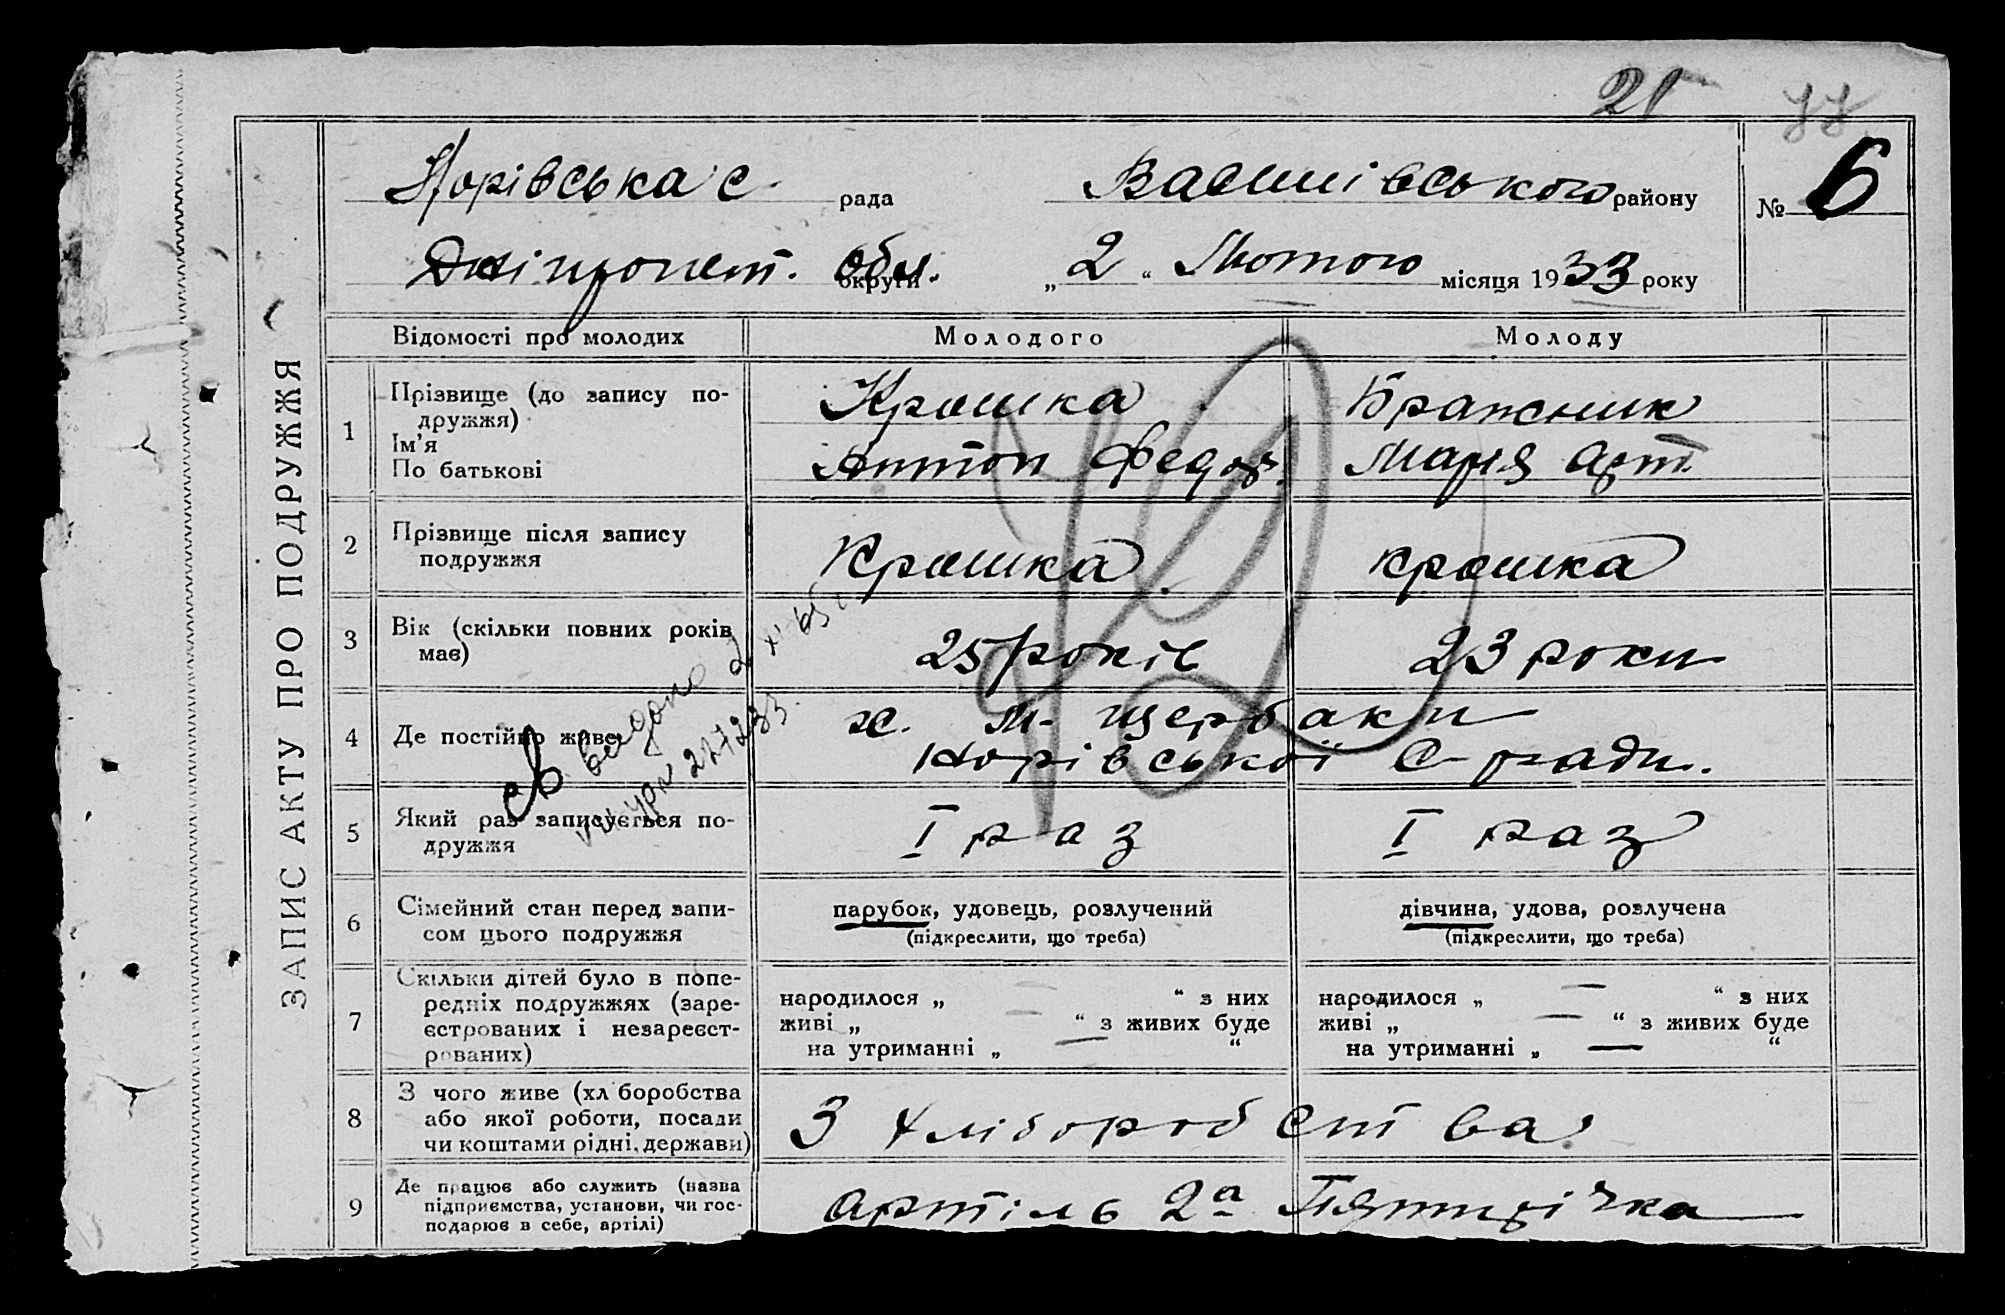 21
77
Норівська с. рада Васинівського району № 6
Дніпропет. обл. округи „ 2 “ Лютого місяця 1933 року
ЗАПИС АКТУ ПРО ПОДРУЖЖЯ
Відомості про молодих Молодого Молоду
1 Прізвище (до запису по-
дружжя)
Ім’я
По батькові
Крошка Бражник
Антон Федор. Марія Арт.
2 Прізвище після запису
подружжя
Крошка крошка
3 Вік (скільки повних років
має)
25 років 23 роки
4 Де постійно живе
х. М. Щербаки
Норівської С-ради.
св видано 2 XI 65
227233.
5 Який раз записується по-
дружжя
I раз I раз
6 Сімейний стан перед запи-
сом цього подружжя
парубок, удовець, розлучений
(підкреслити, що треба)
дівчина, удова, розлучена
(підкреслити, що треба)
7 Скільки дітей було в попе-
редніх подружжях (заре-
єстрованих і незареєст-
рованих)
народилося „ — “ з них
живі „ — “ з живих буде
на утриманні „ — “
народилося „ — “ з них
живі „ — “ з живих буде
на утриманні „ — “
8 З чого живе (хліборобства
або якої роботи, посади
чи коштами рідні, держави)
З хліборобства
9 Де працює або служить (назва
підприємства, установи, чи гос-
подарює в себе, артілі)
артіль 2а Пятирічка